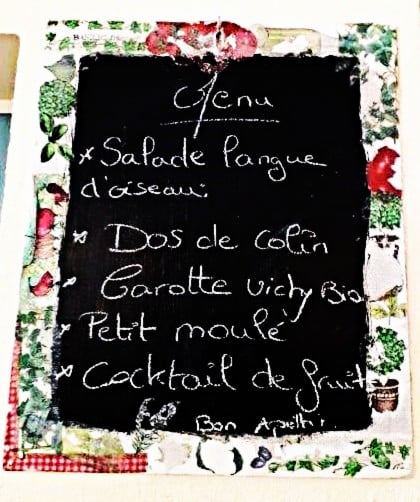 Menu
* Salade langue
d'oiseau.
* Dos de colin
* Carotte vichy Bio
* Petit moulé
* Cocktail de fruits
Bon